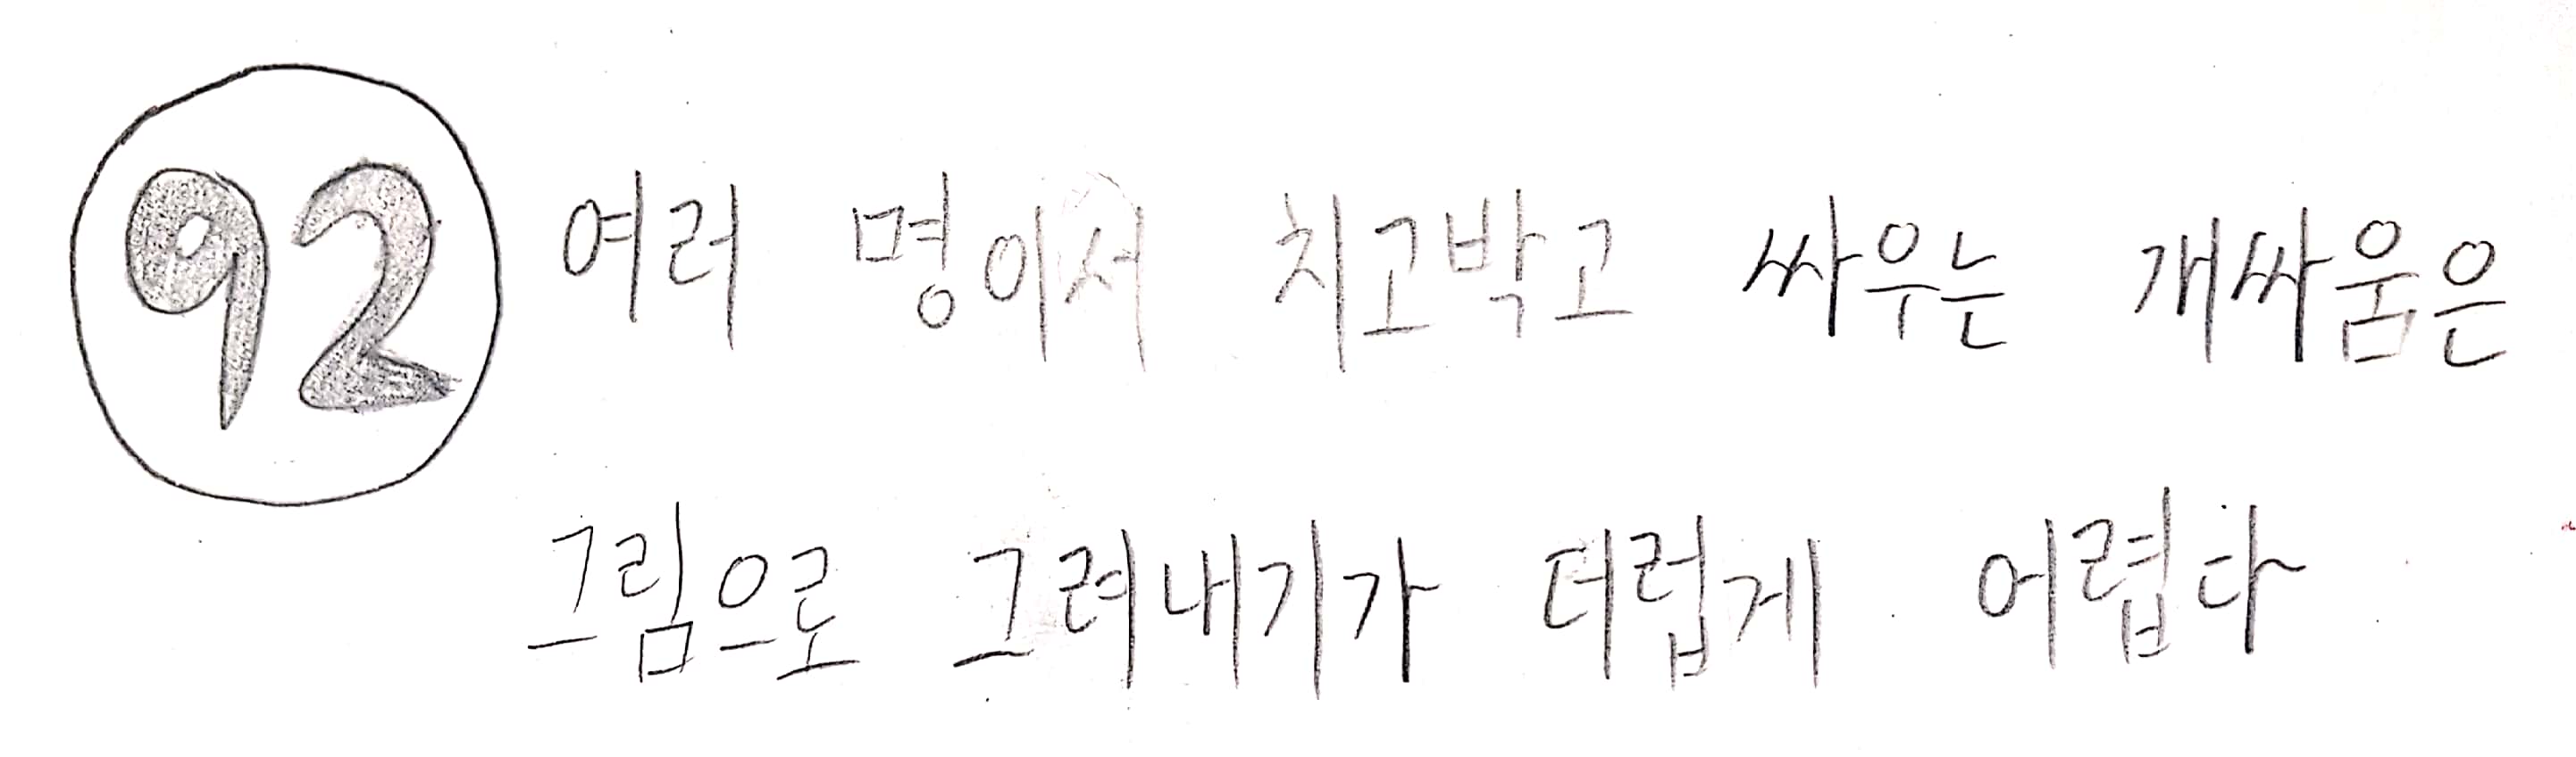 92 여러 명이서 치고박고 싸우는 개싸움은
그림으로 그려내기가 더럽게 어렵다